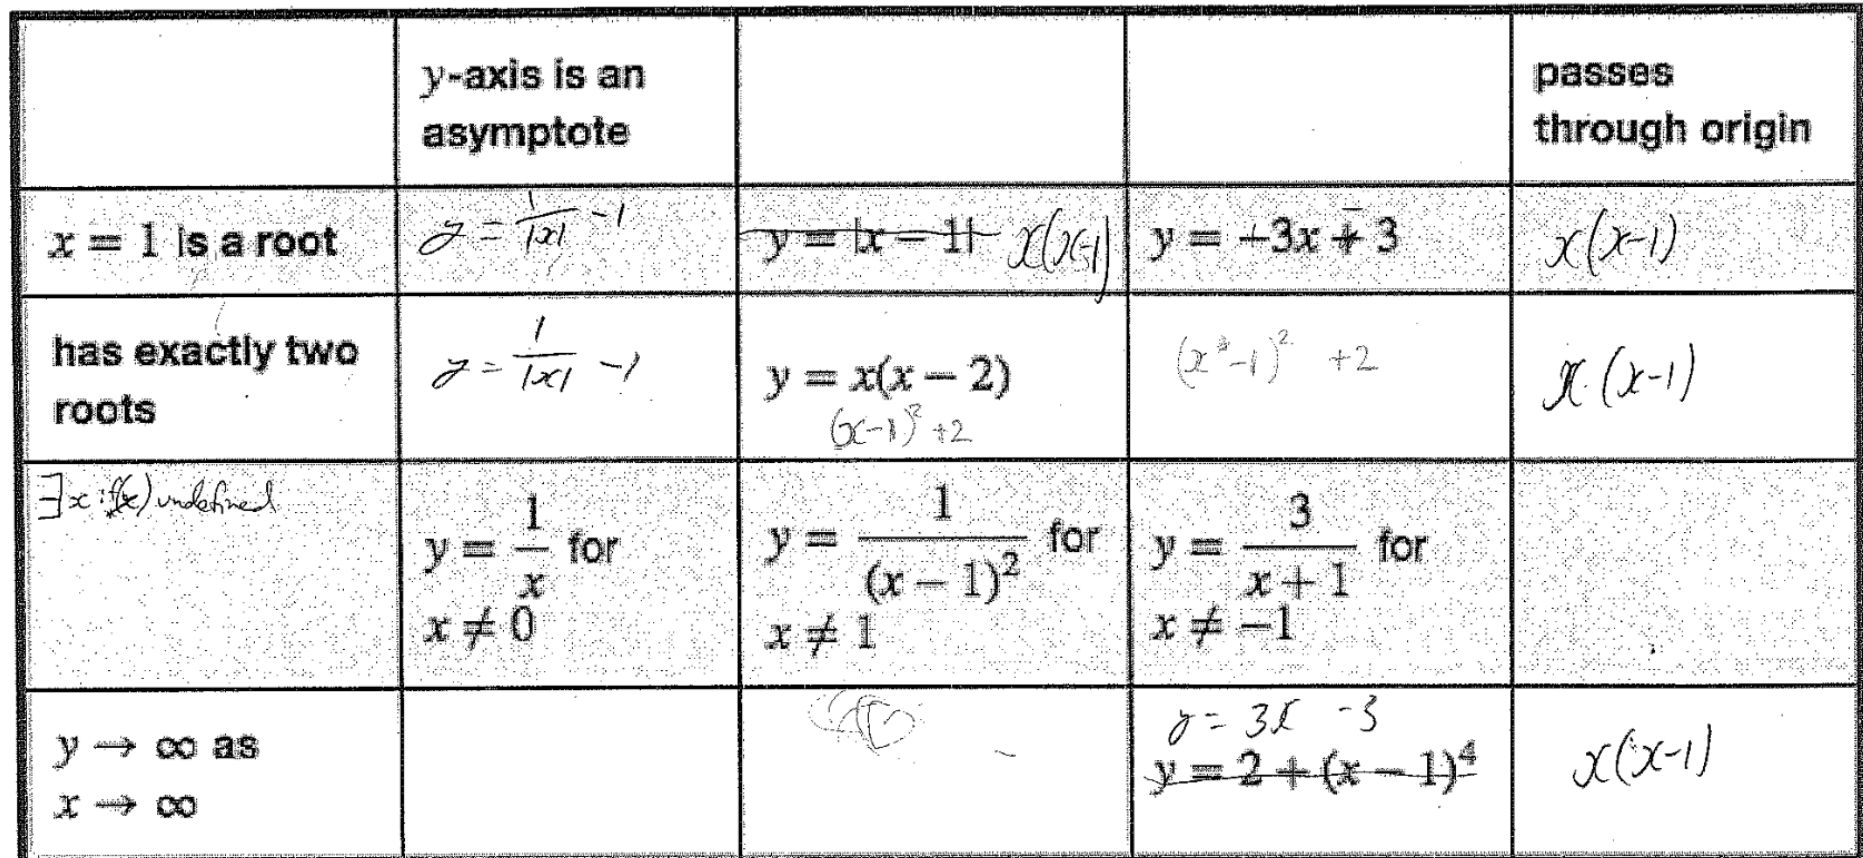 y-axis is an
asymptote
passes
through origin
x = 1 is a root
y = 1/|x| - 1
y = |x - 1| x(x-1)
y = -3x + 3
x(x-1)
has exactly two
roots
y = 1/|x| - 1
y = x(x - 2)
(x-1)² + 2
(x² - 1)² + 2
x(x-1)
∃x : f(x) undefined
y = 1/x for
x ≠ 0
y = 1/(x - 1)² for
x ≠ 1
y = 3/(x + 1) for
x ≠ -1
y → ∞ as
x → ∞
y = 3x - 3
y = 2 + (x - 1)⁴
x(x-1)